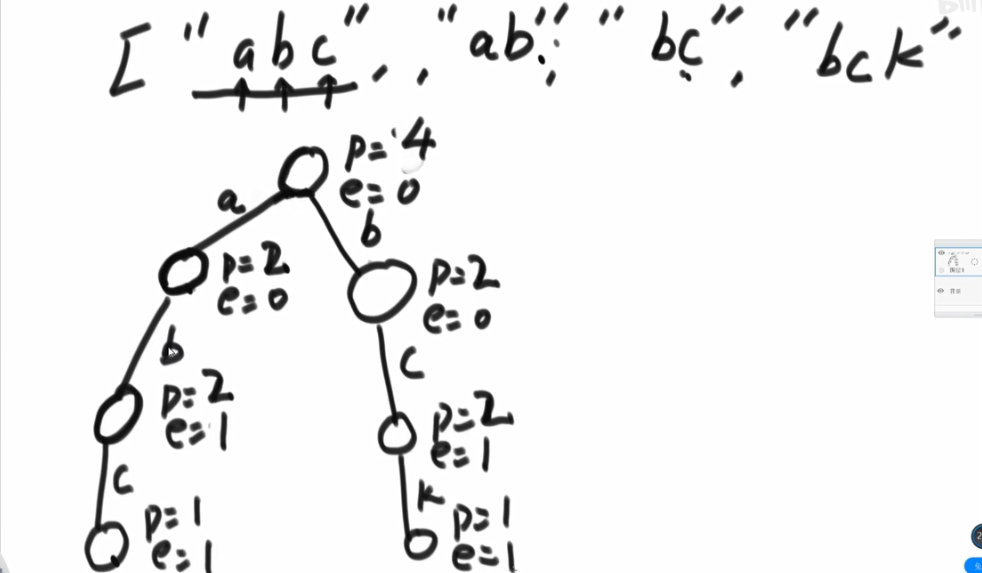 ["abc", "ab", "bc", "bck"
p=4
e=0
a
b
p=2
e=0
p=2
e=0
b
c
p=2
e=1
p=2
e=1
c
k
p=1
e=1
p=1
e=1